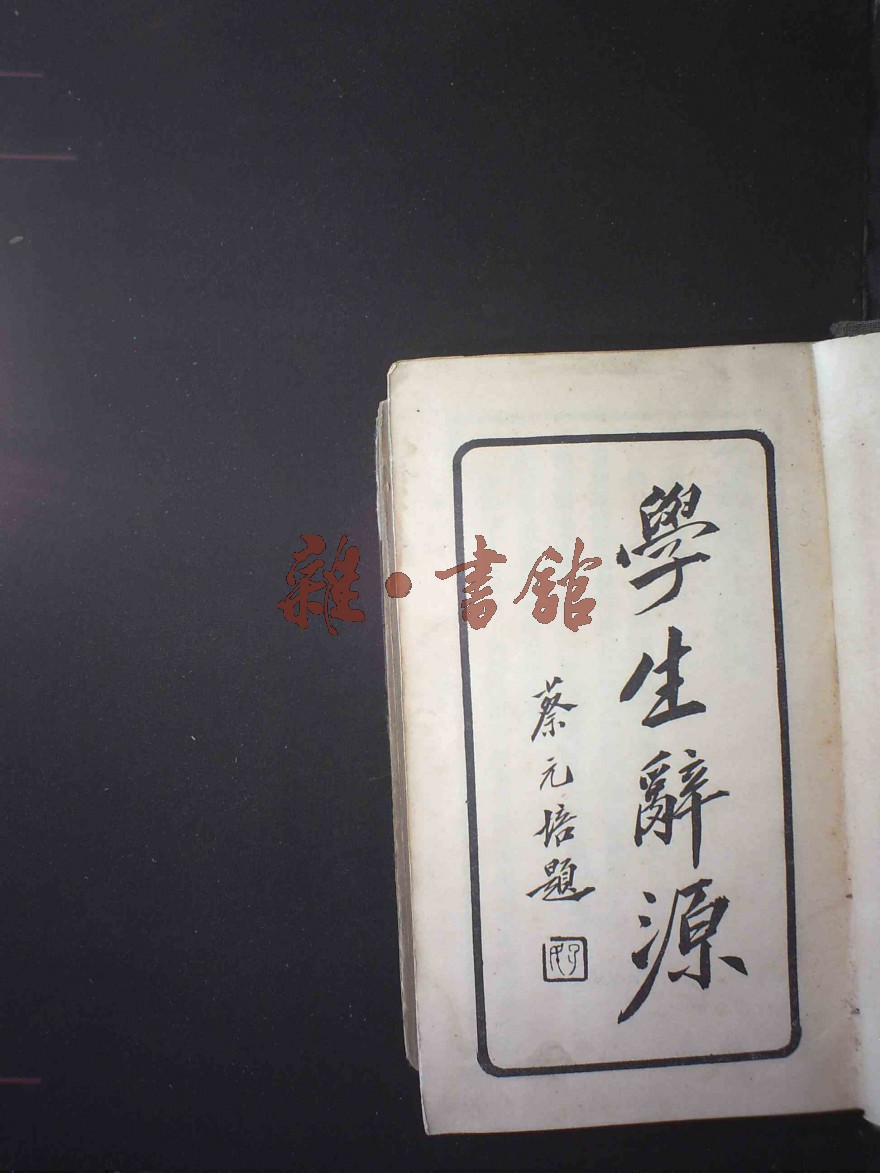 學生辭源
蔡元培題
雜·書館